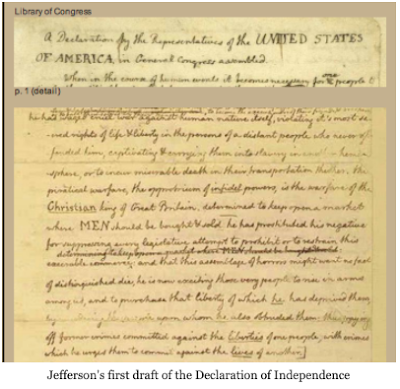 Library of Congress
A Declaration by the Representatives of the UNITED STATES
OF AMERICA, in General Congress assembled.
When in the course of human events it becomes necessary for one people to
p. 1 (detail)
he has waged cruel war against human nature itself, violating it's most sa-
-cred rights of life & liberty in the persons of a distant people who never of-
fended him, captivating & carrying them into slavery in another hemi-
sphere, or to incur miserable death in their transportation thither. this
piratical warfare, the opprobrium of infidel powers, is the warfare of the
Christian king of Great Britain. determined to keep open a market
where MEN should be bought & sold he has prostituted his negative
for suppressing every legislative attempt to prohibit or to restrain this
determining to keep open a market where MEN should be bought & sold
execrable commerce: and that this assemblage of horrors might want no fact
of distinguished die, he is now exciting those very people to rise in arms
among us, and to purchase that liberty of which he has deprived them,
by the people upon whom he also obtruded them: thus paying
off former crimes committed against the liberties of one people, with crimes
which he urges them to commit against the lives of another.]
Jefferson's first draft of the Declaration of Independence